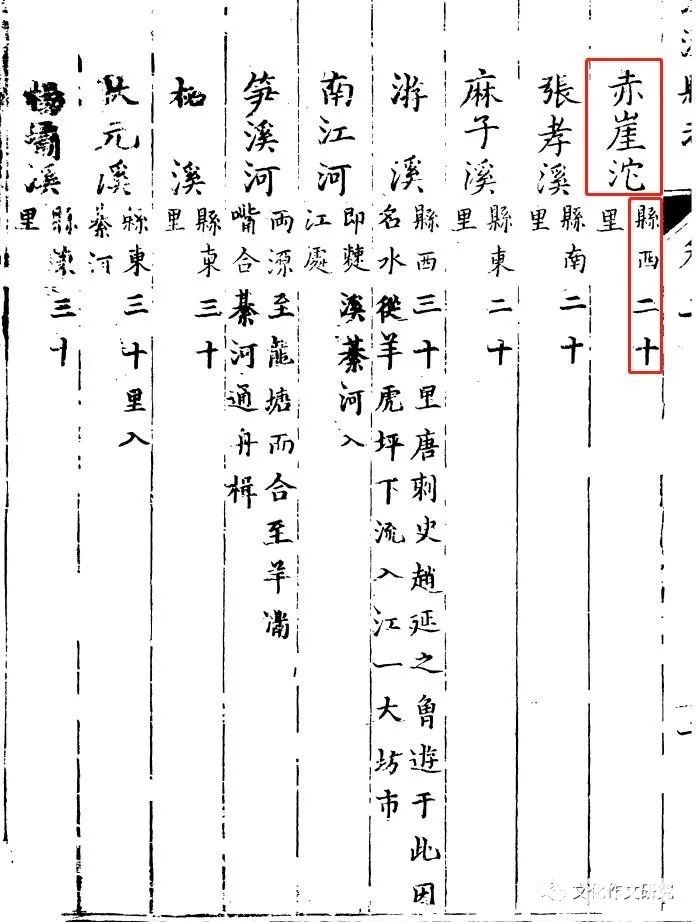 赤崖沱
縣西二十
里
張孝溪
縣南二十
里
麻子溪
縣東二十
里
游溪
縣西三十里唐刺史趙延之曾遊于此因
名水從羊虎坪下流入江一大坊市
南江河
即僰溪綦河入
江處
笋溪河
兩源至龍塘而合至羊灣
嘴合綦河通舟楫
溪
縣東三十
里
狀元溪
縣東三十里入
綦河
壩溪
縣 三十
里
文化作文研究